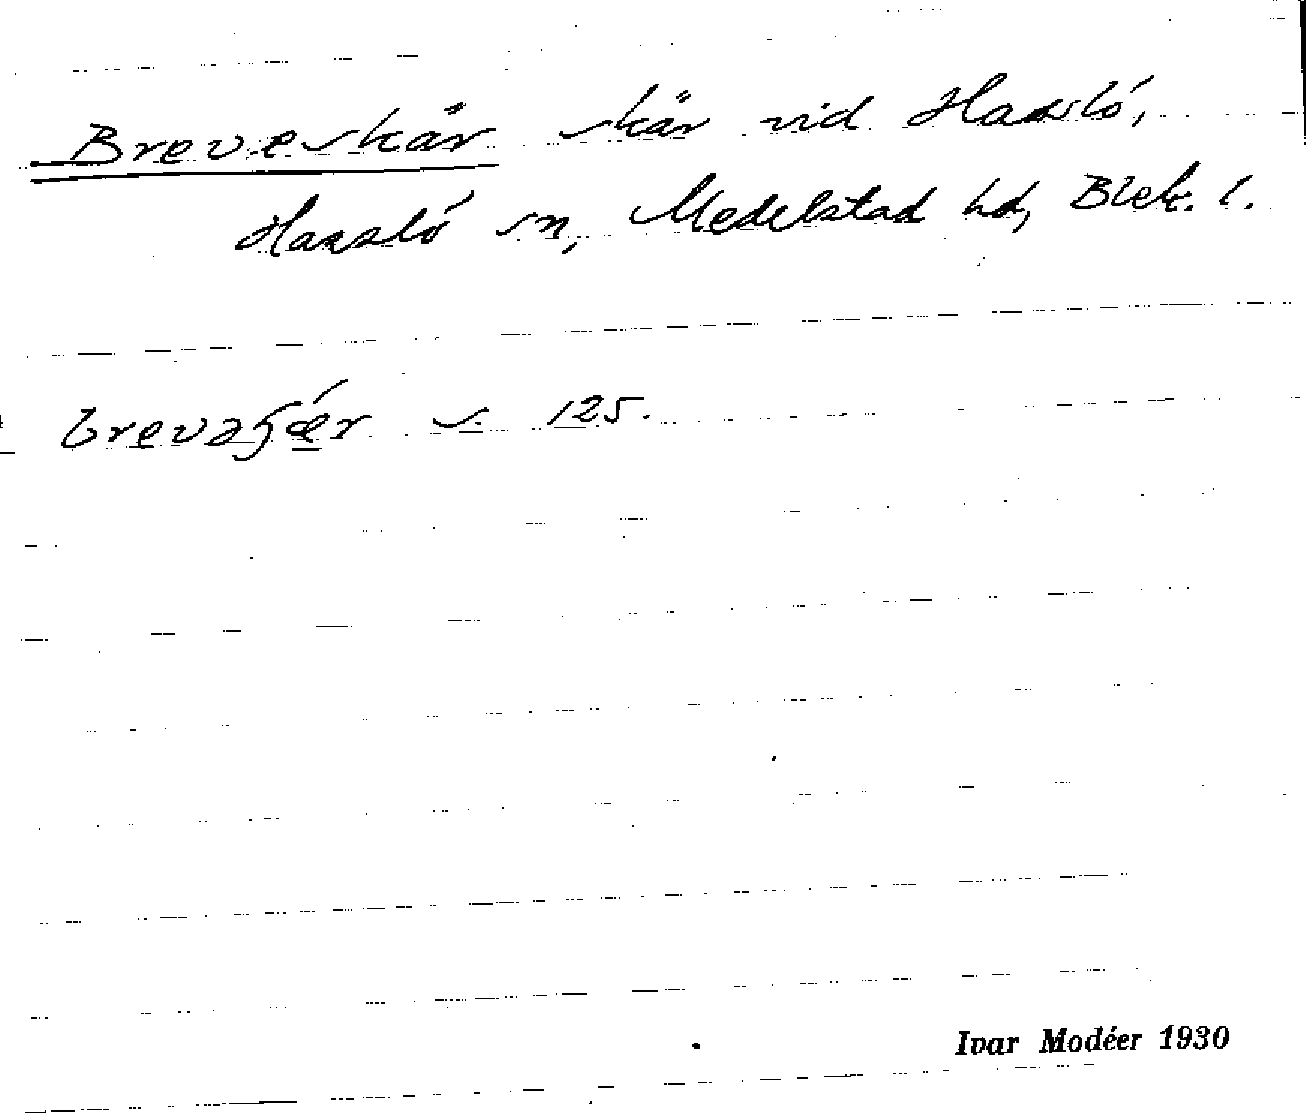 Breveskär skär vid Hasslö,
Hasslö sn, Medelstad hd, Blek. l.
brevəʂǽr s. 125.
Ivar Modéer 1930